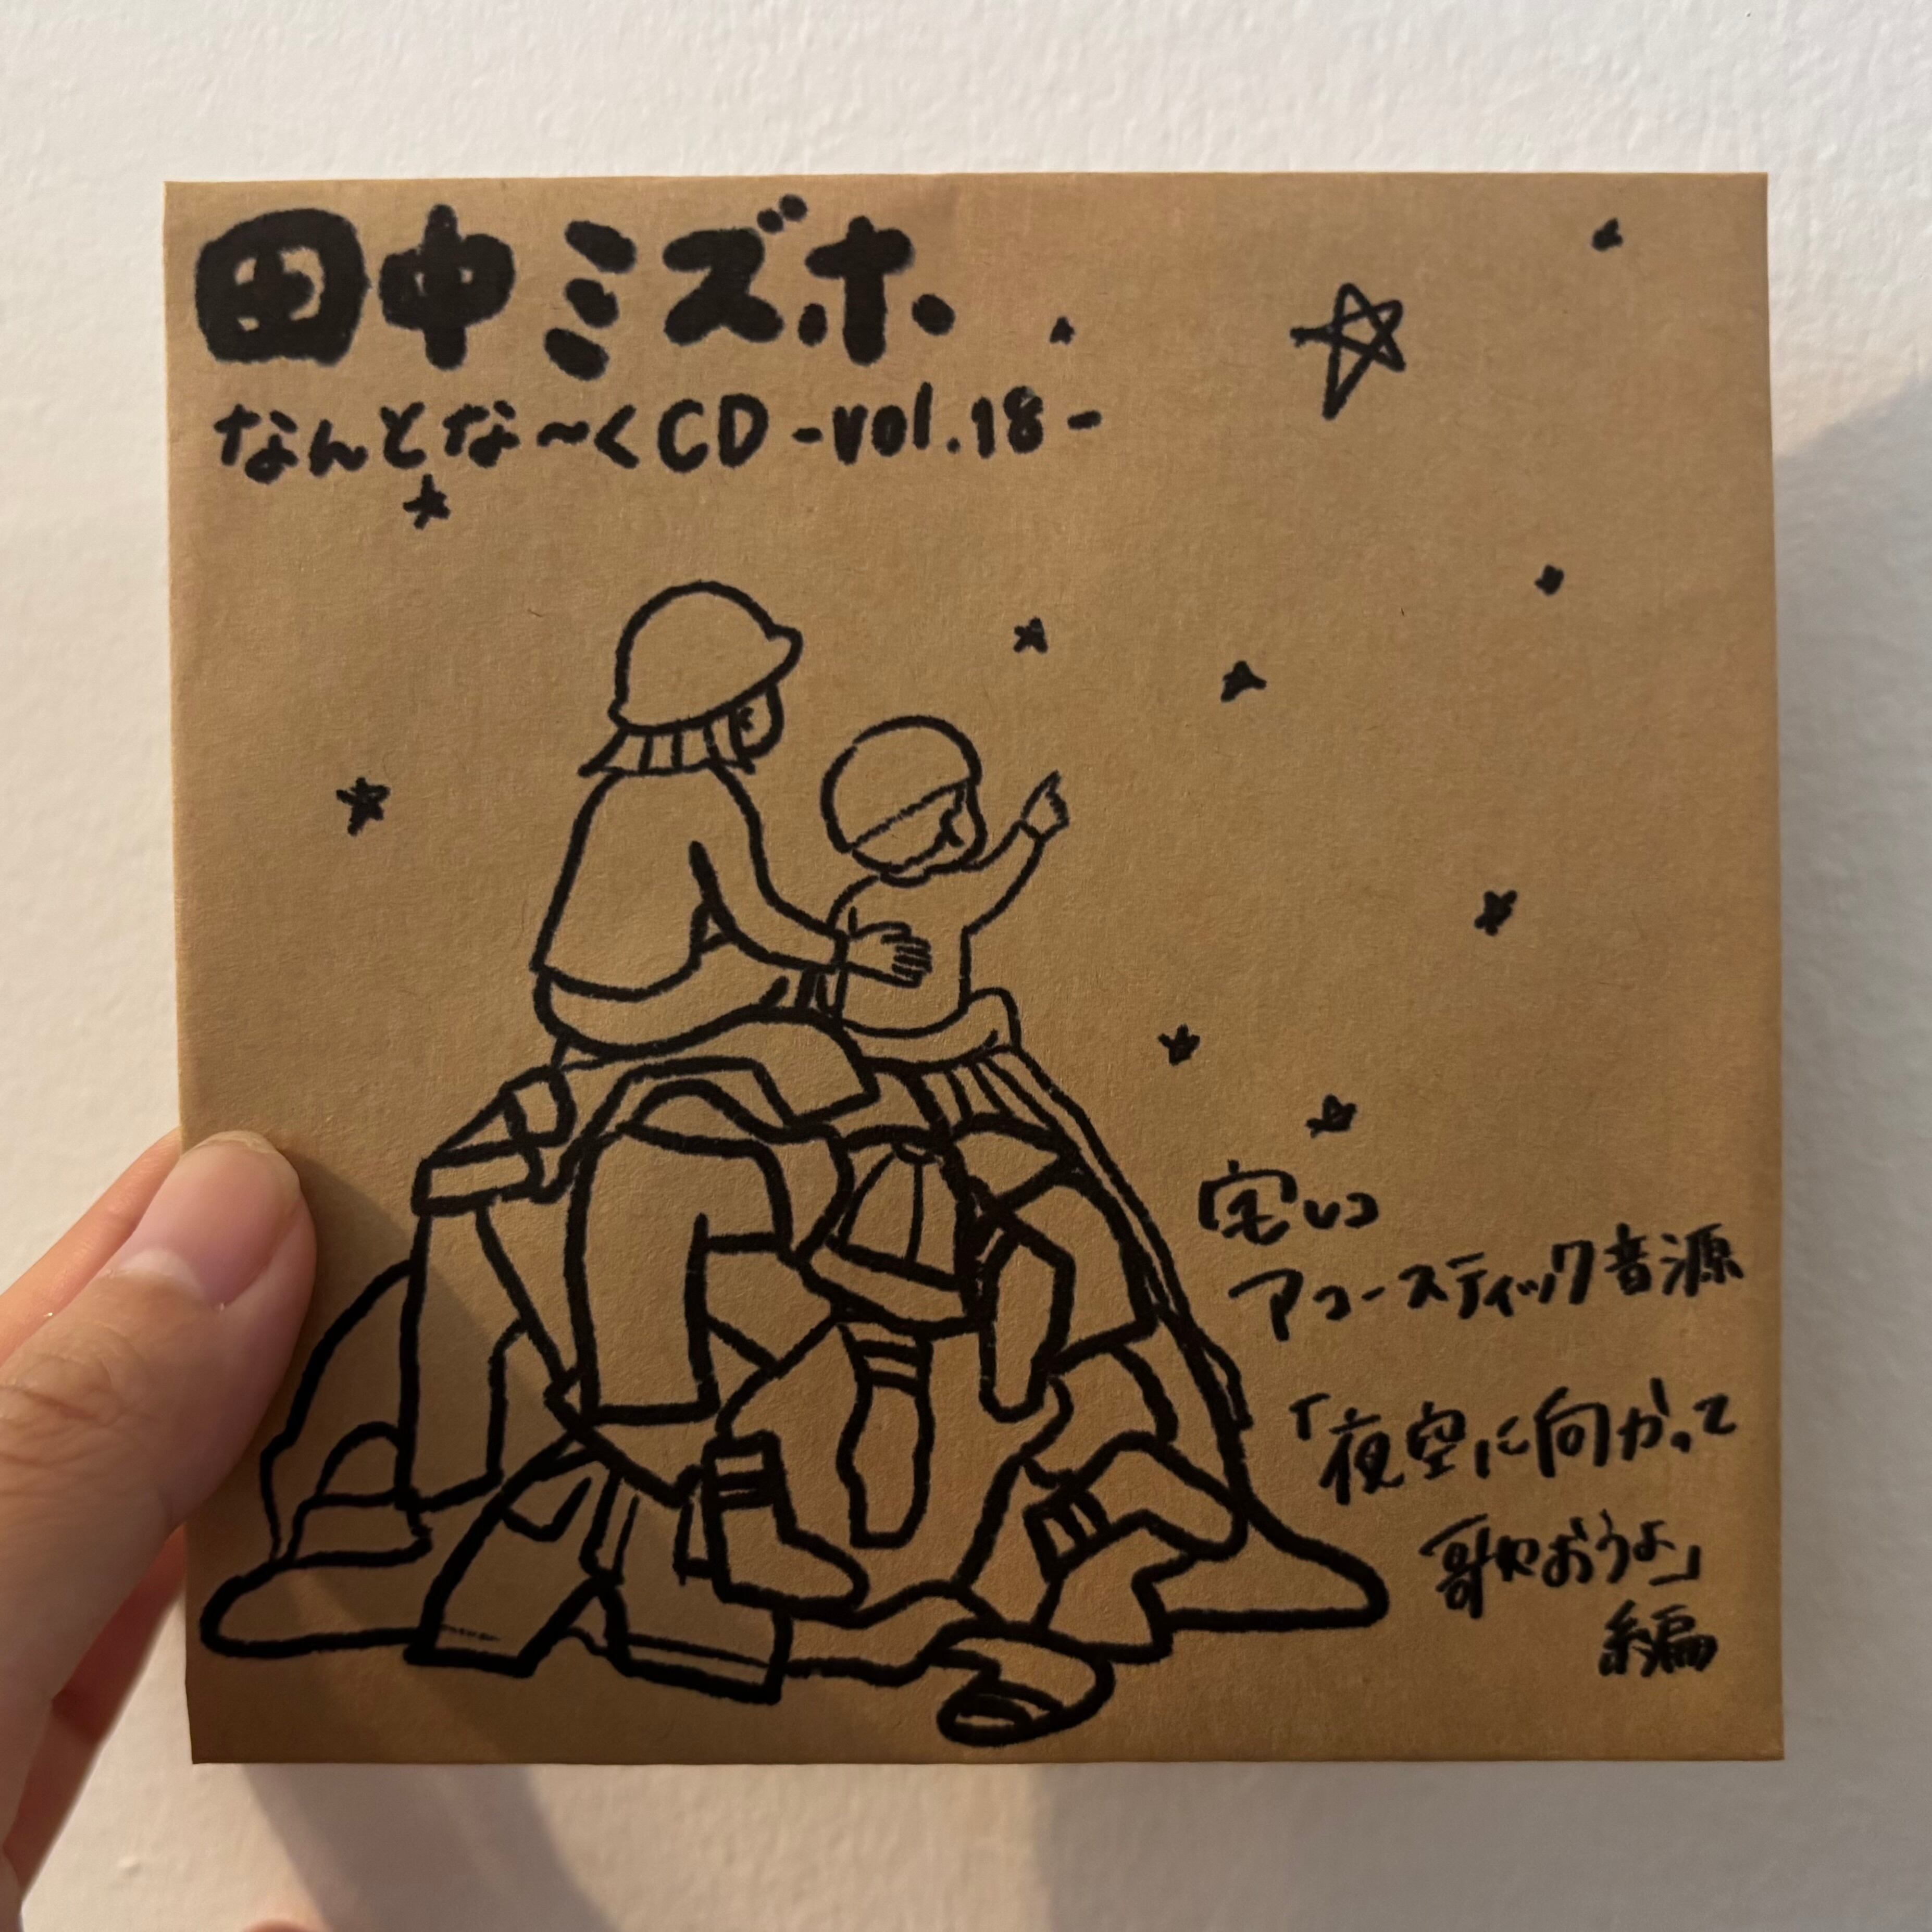 田中ミズホ
なんとな〜くCD -vol.18-
宅レコ
アコースティック音源
「夜空に向かって
歌おうよ」
編